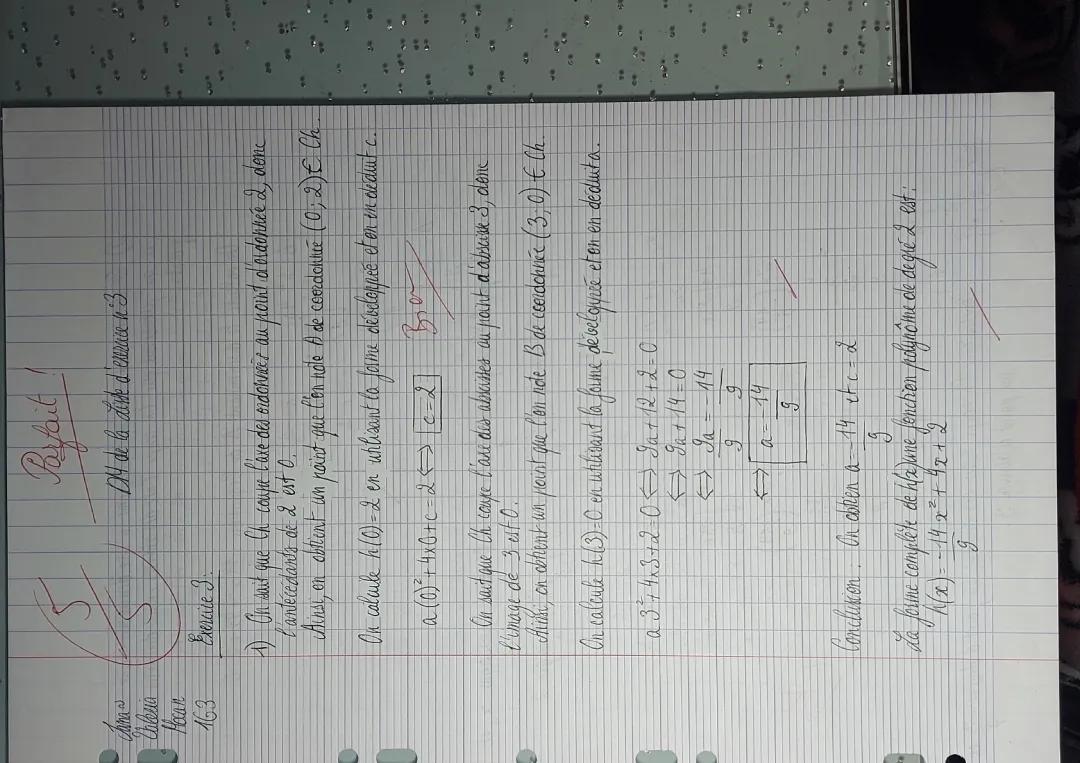 Parfait !
5/5
DM de la série d'exercice n°3
Valeria
163
Exercice 3.
1) On sait que Ch coupe l'axe des ordonnées au point d'ordonnée 2, donc
l'antécédants de 2 est 0.
Ainsi, on obtient un point que l'on note A de coordonnée (0 ; 2) ∈ Ch.
On calcule h(0) = 2 en utilisant la forme développée et on en déduit c.
a(0)² + 4×0 + c = 2 <=> c = 2
Bien
On sait que Ch coupe l'axe des abscisses au point d'abscisse 3, donc
l'image de 3 est 0.
Ainsi, on obtient un point que l'on note B de coordonnée (3 ; 0) ∈ Ch.
On calcule h(3) = 0 en utilisant la forme développée et on en déduit a.
a3² + 4×3 + 2 = 0 <=> 9a + 12 + 2 = 0
<=> 9a + 14 = 0
<=> 9a/9 = -14/9
<=> a = -14/9
Conclusion : On obtien a = -14/9 et c = 2
La forme complète de h(x) une fonction polynôme de degré 2 est :
h(x) = -14/9 x² + 4x + 2